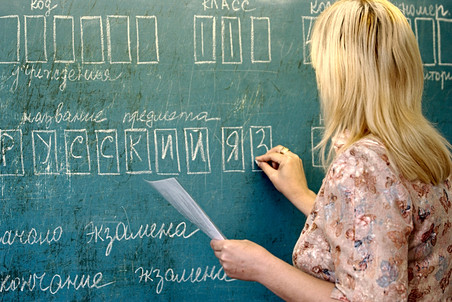 код КЛАСС номер.
11
учреждения
название предмета
РУССКИЙ ЯЗ
начало экзамена
кончание экзамена